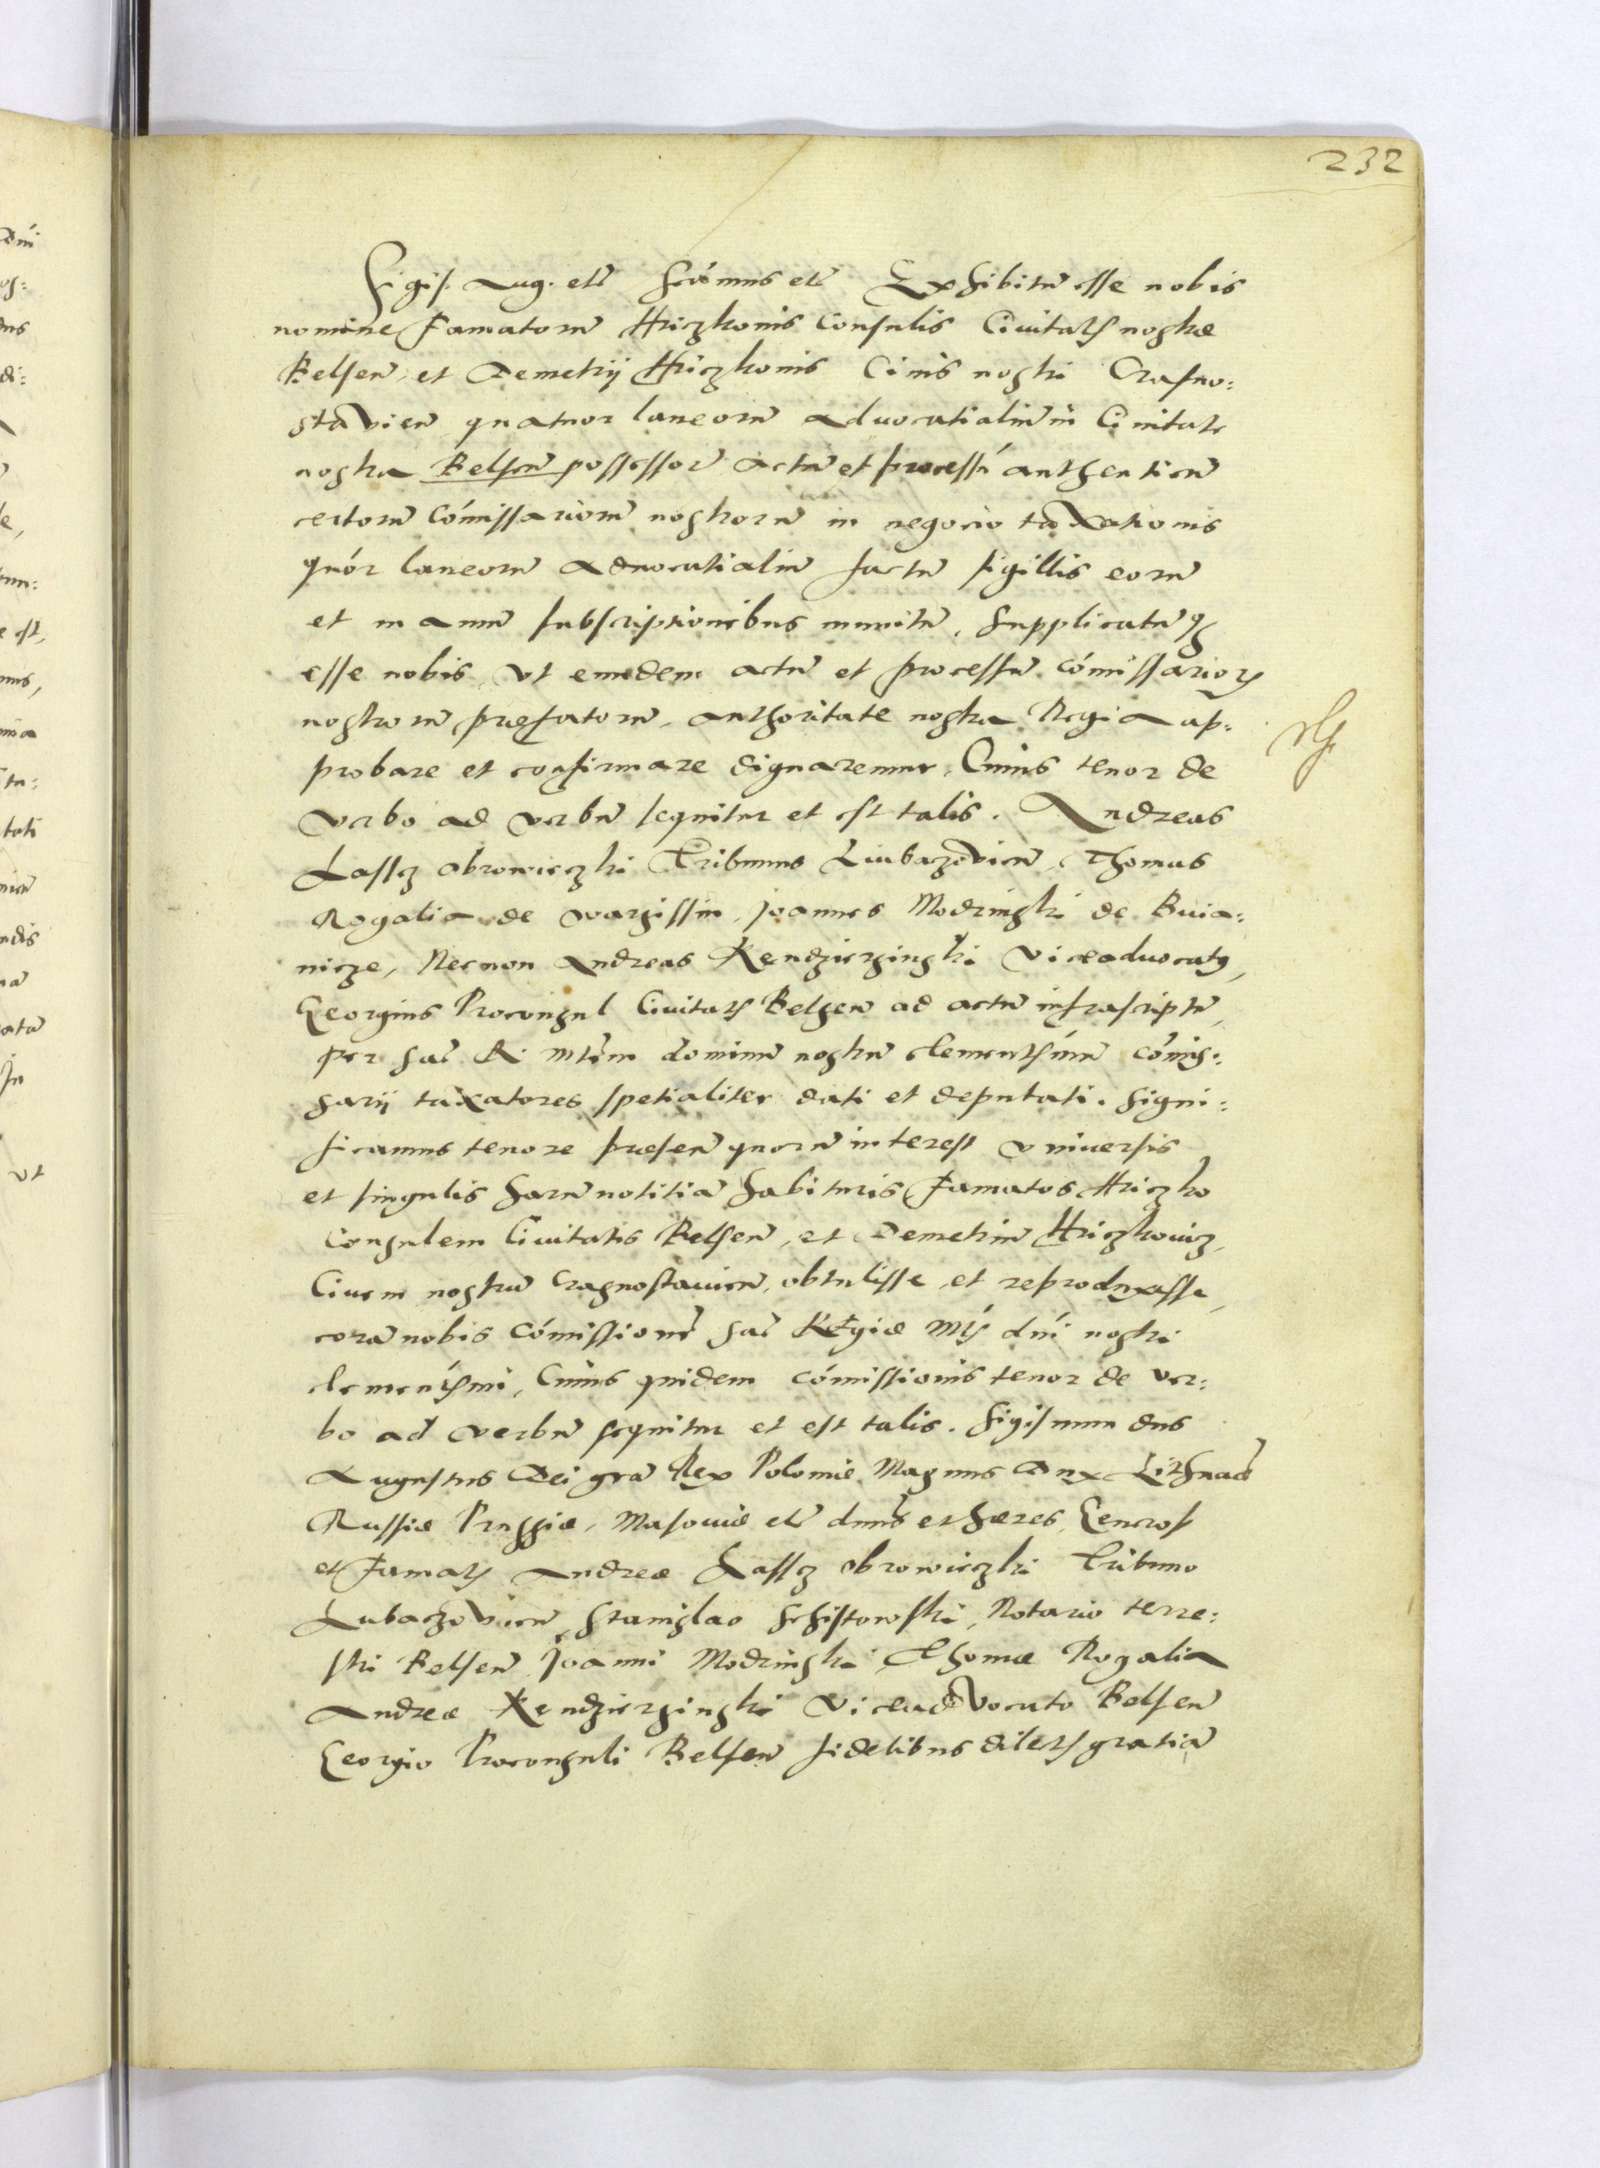 232
Sigis. Aug. etc̃ Scímus etc̃ Exhibitũ esse nobis
nomine Famatorũ Hriczkonis Consulis Ciuitatis nostræ
Belsen̄, et Demetrij Hriczkonis Ciuis nostri Crasno:
stavien̄ quatuor laneorũ aduocatialiũ in Ciuitate
nostra Belsen̄ possessorũ actũ et processũ authenticũ
certorũ Cómissariorũ nostrorũ in negocio taxationis
quór laneorũ aduocatialiũ factũ sigillis eorũ
et manuũ subscriptionibus munitũ, Supplicatũq3
esse nobis, vt eundem actũ et processũ cómissarior̃
nostrorũ præfatorũ, authoritate nostra Regia ap:
probare et confirmare dignaremur, Cuius tenor de
verbo ad verbũ sequitur et est talis. Andreas
Lasscz obrowieczki Tribunus Liubaczovien̄, Thomas
Rogalia de warzissin, Joannes Modrinski de Buia:
nicze, Necnon Andreas Kendzierzinski viceaduocatus,
Georgius Proconsul Ciuitatis Belzen̄ ad actũ infrascriptũ,
per Sac̃ R. Mtẽm dominũ nostrũ clementissimũ cómis:
sarij taxatores spetialiter dati et deputati. Signi:
ficamus tenore præsen̄ quorũ interest vniuersis
et singulis harũ notitiã habituris Famatos Hriczko
Consulem Ciuitatis Belsen̄, et Demetriũ Hriczkowicz,
Ciuem nostrũ Crasnostauien̄, obtulisse, et reproduxisse,
corã nobis Cómissionẽ Sac̃ Regiæ Mtis dńi nostri
clementissimi, Cuius quidem cómissionis tenor de ver:
bo ad verbũ sequitur et est talis. Sigismundus
Augustus Dei grã Rex Poloniæ, Magnus Dux Lithuaniæ
Russiæ Prussiæ, Masouiæ etc̃ dnus et hæres, Generos
et Famatis Andreæ Lasscz obrowieczki Tribuno
Lubaczovien̄, Stanislao Schistowski, Notario terre:
stri Belsen̄, Joanni Modrinski, Thomæ Rogalia
Andreæ Kendzierzinski Viceadvocato Belsen̄
Georgio Proconsuli Belsen̄ fidelibus dilectis gratiã